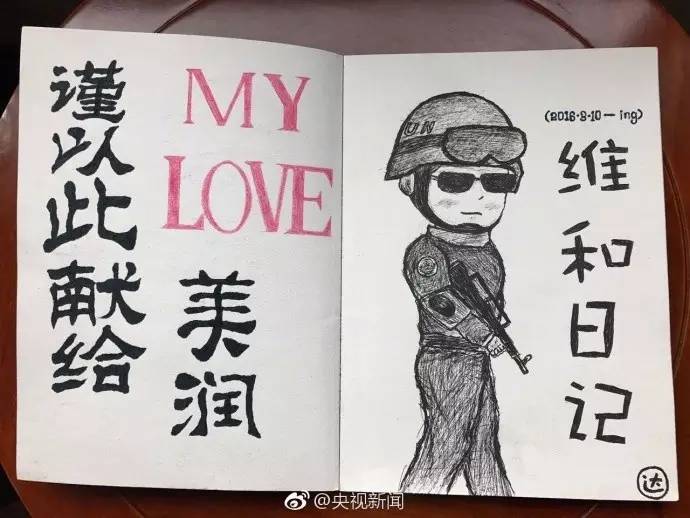 谨以此献给
MY
LOVE
美润
UN
(2016·9·10一ing)
维和日记
达
@央视新闻